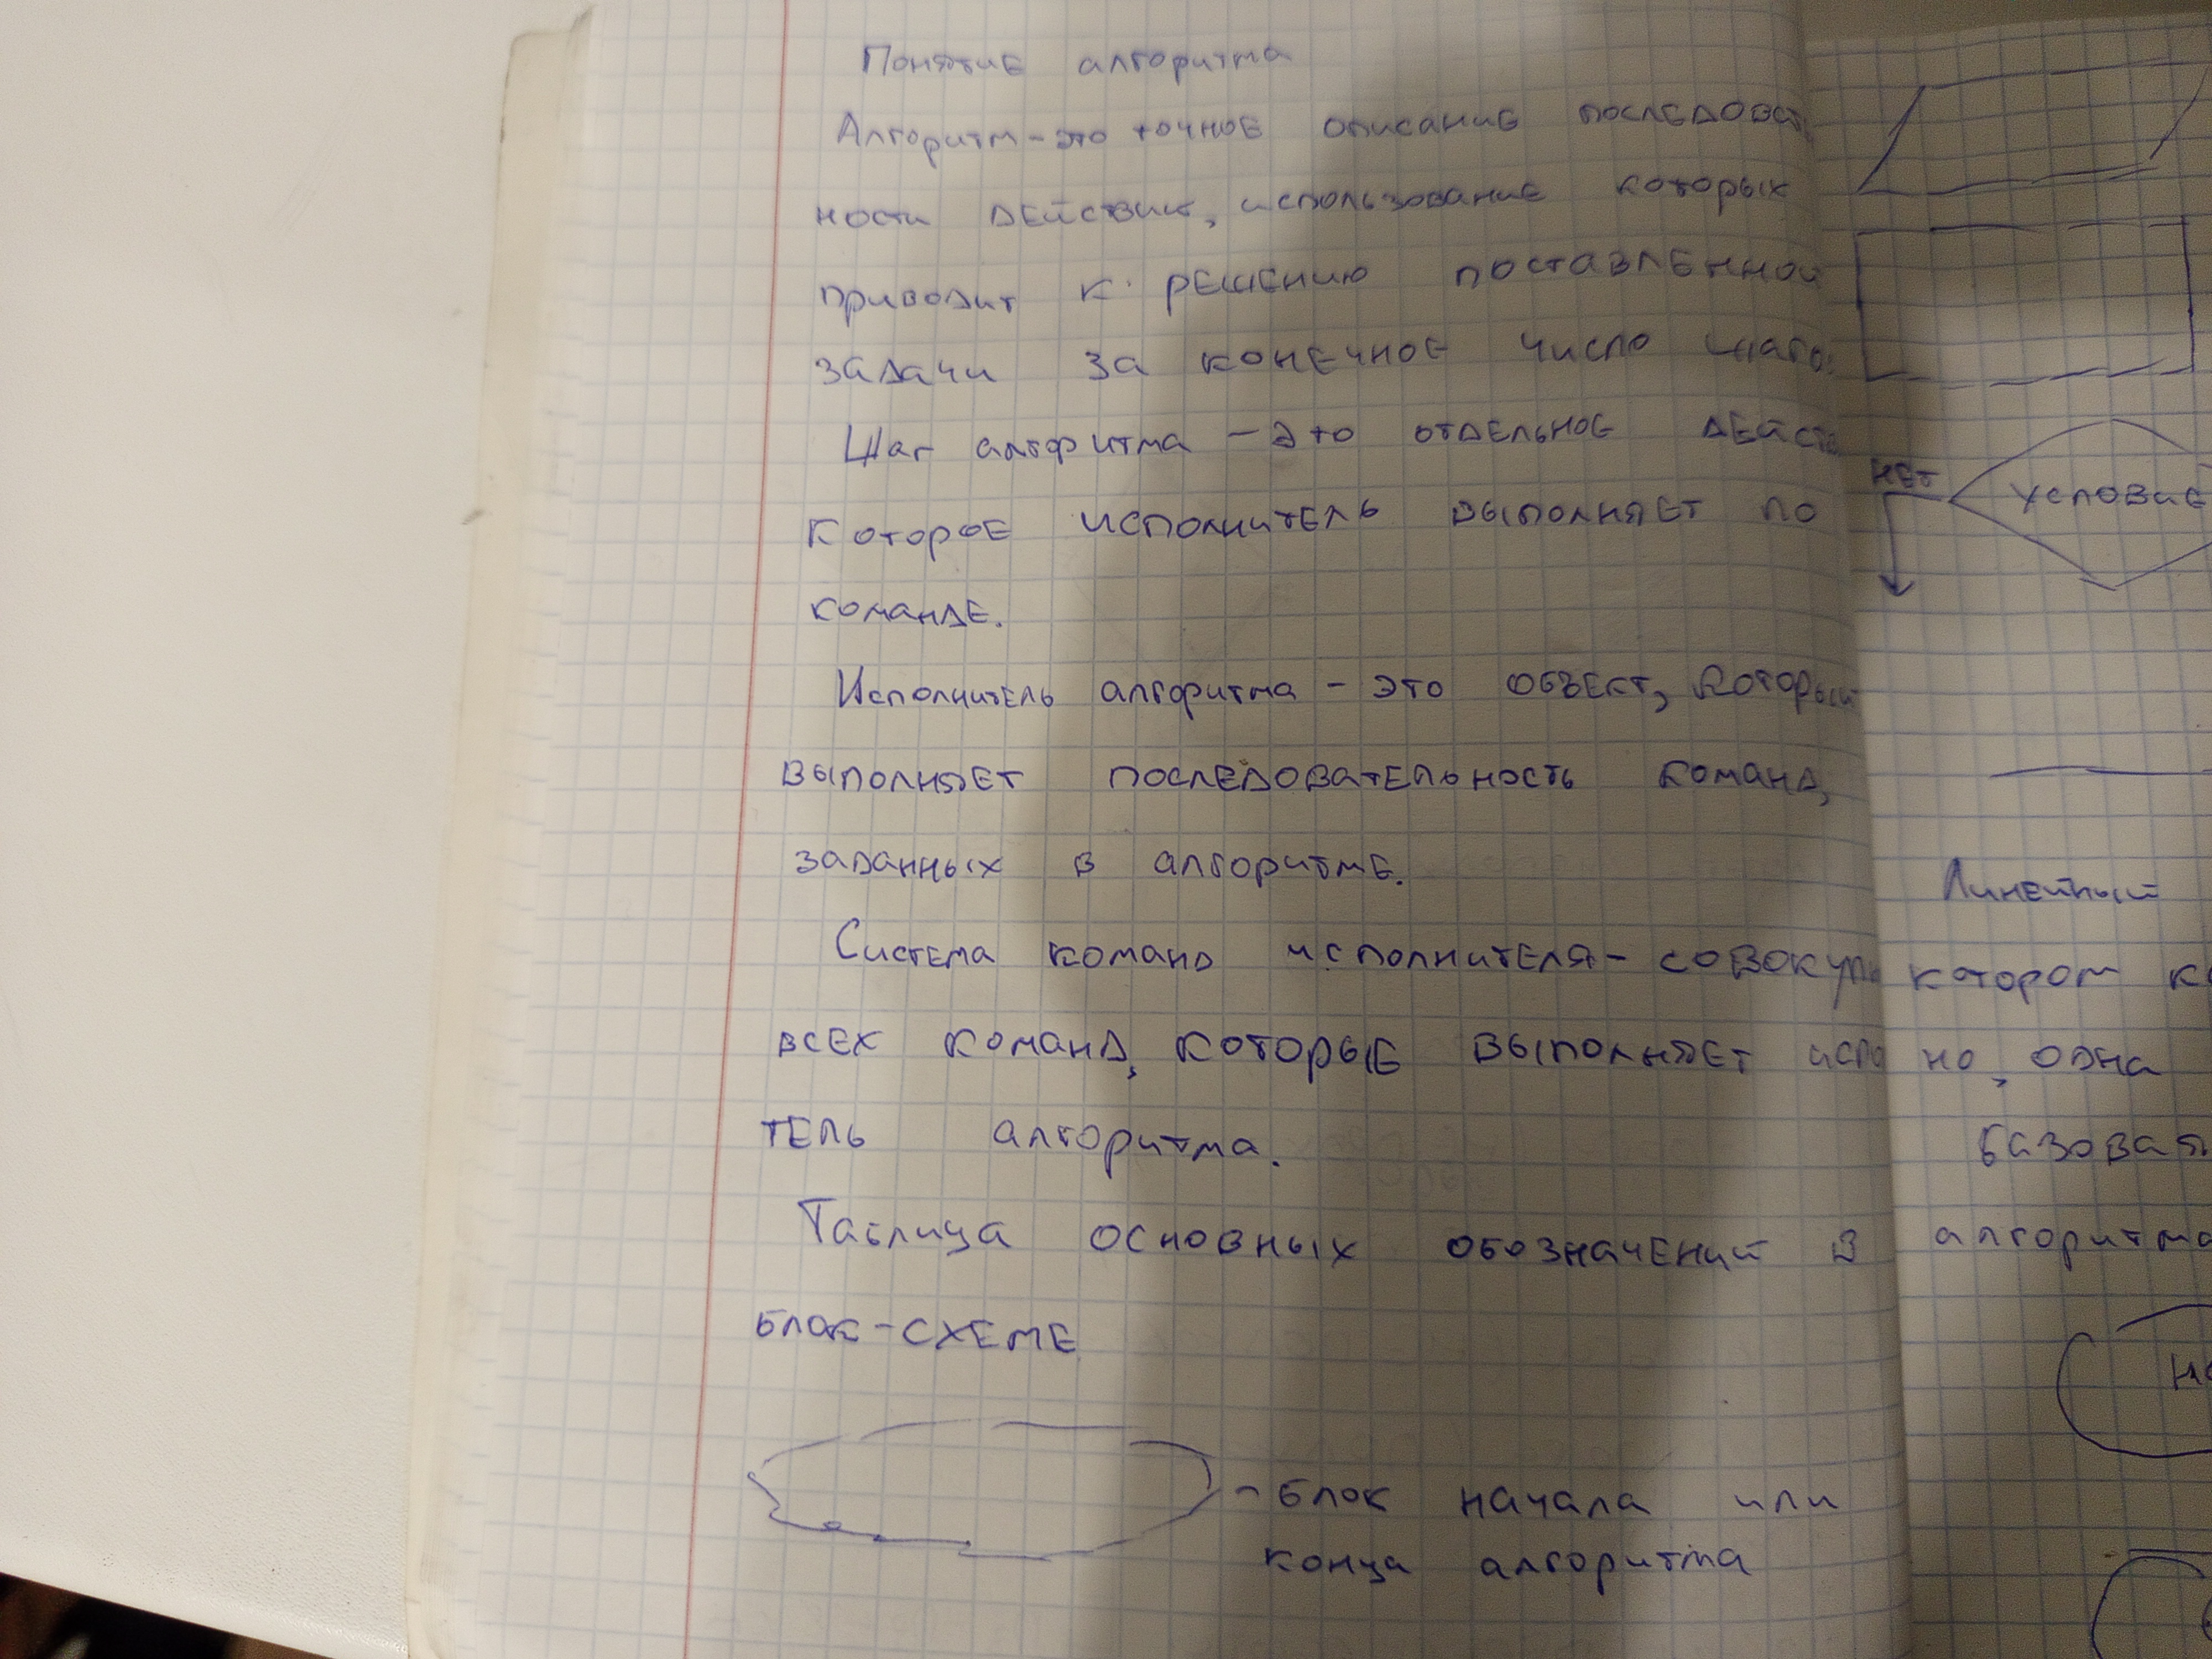 Понятие алгоритма
Алгоритм - это точное описание последоват
ности действий, использование которых
приводит к решению поставленной
задачи за конечное число шаго
Шаг алгоритма - это отдельное действ
которое исполнитель выполняет по
команде.
Исполнитель алгоритма - это объект, который
выполняет последовательность команд,
заданных в алгоритме.
Система команд исполнителя - совокупн
всех команд, которые выполняет испо
тель алгоритма.
Таблица основных обозначений в
блок-схеме
- блок начала или
конца алгоритма
нет
условие
Линейный
котором
но, одна
базовая
алгоритма